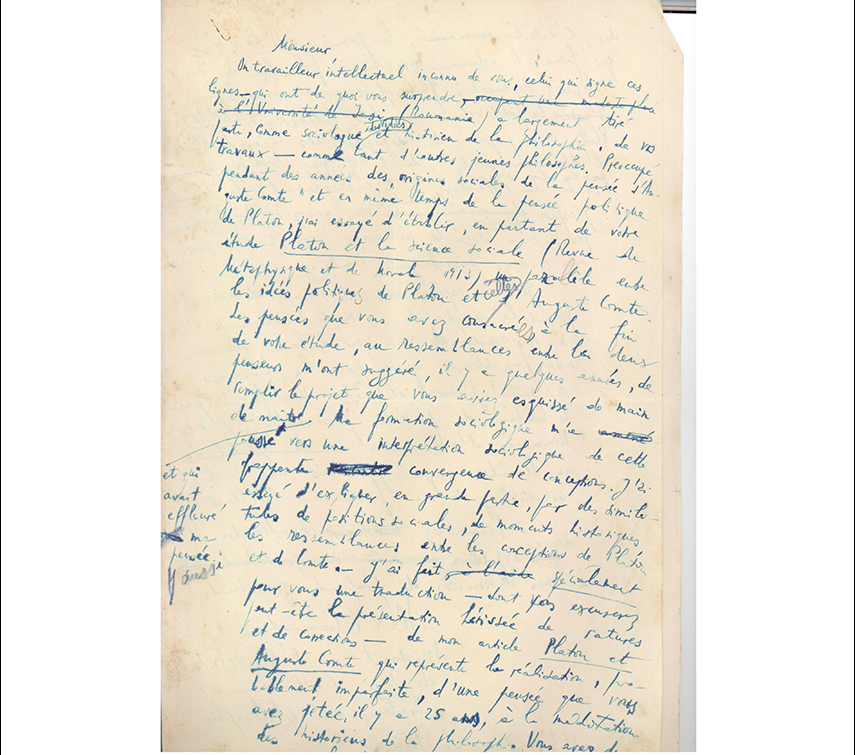 Monsieur
Un travailleur intellectuel inconnu de vous, celui qui signe ces
lignes – qui ont de quoi vous surprendre – occupant une modeste place
à l'Université de Iassi (Roumanie) a largement tiré
parti, comme sociologue et historien de la philosophie, de vos
travaux — comme tant d'autres jeunes philosophes. Préoccupé
pendant des années des origines sociales de la pensée d'Au-
guste Comte" et en même temps de la pensée politique
de Platon, j'ai essayé d'établir, en partant de votre
étude Platon et la science sociale (Revue de
Métaphysique et de Morale 1913) un parallèle entre
les idées politiques de Platon et celles d'Auguste Comte.
Les pensées que vous avez consacrées, à la fin
de votre étude, au ressemblances entre les deux
penseurs m'ont suggéré, il y a quelques années, de
remplir le projet que vous aviez esquissé de main
de maître. Ma formation sociologique m'a amené
poussé vers une interprétation sociologique de cette
frappante convergence de conceptions. J'ai
essayé d'expliquer, en grande partie, par des simili-
tudes de positions sociales, de moments historiques,
les ressemblances entre les conceptions de Platon
et de Comte. – J'ai fait à l'aide spécialement
pour vous une traduction — dont vous excuserez
peut-être la présentation hérissée de ratures
et de corrections — de mon article Platon et
Auguste Comte qui représente la réalisation, pro-
bablement imparfaite, d'une pensée que vous
avez jetée, il y a 25 ans, à la méditation
des historiens de la philosophie. Vous avez
et qui
avait
effleuré
ma
pensée
aussi